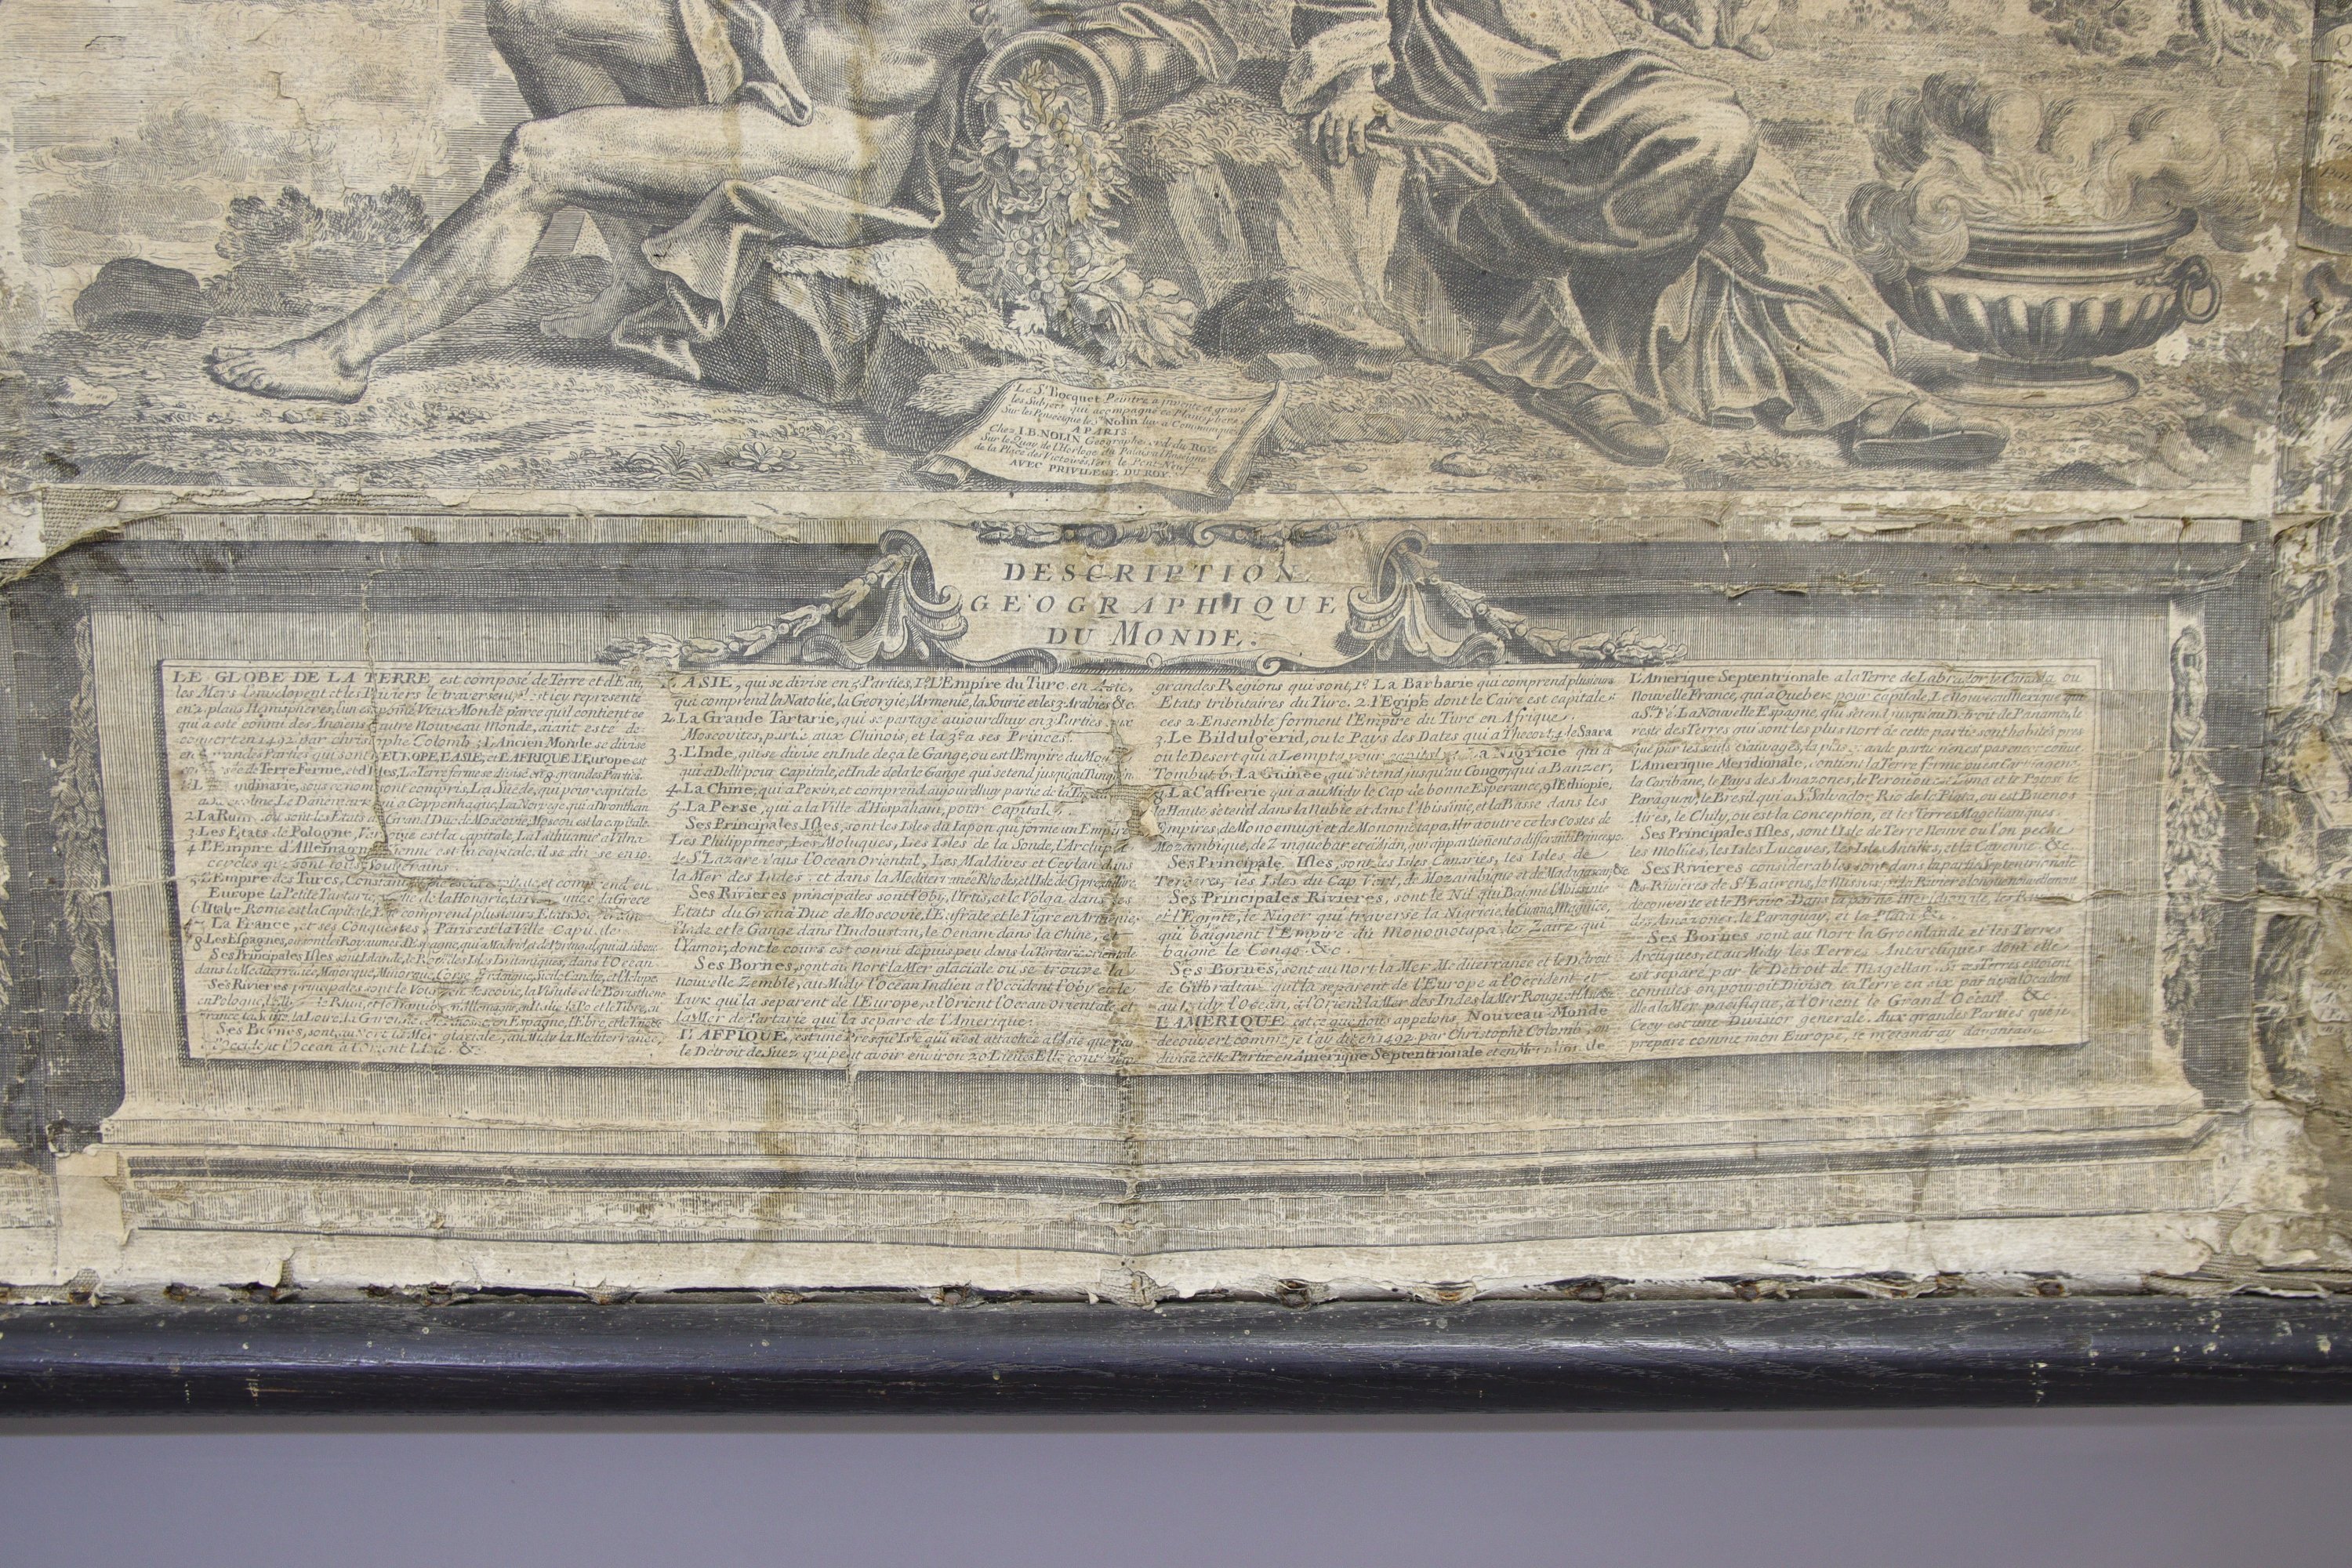 Le Sr. Bocquet Peintre a invente et gravé
les Sujets qui acompagne ce Planisphere
Sur les Penseé que le Sr. Nolin luy a Communiqueé
A PARIS
Chez I.B. NOLIN Geographe ord. du ROY
Sur le Quay de l'Horloge du Palais a l'Enseigne
de la Place des Victoires, Vers le Pont Neuf
AVEC PRIVILEGE DU ROY.
DESCRIPTION
GEOGRAPHIQUE
DU MONDE.
LE GLOBE DE LA TERRE est composé de Terre et d'Eau,
les Mers l'envelopent et les Riviers le traversent, est icy representé
en 2 plans Hemispheres, l'un est nomé Vieux Monde parce qu'il contient ce
qui a esté connu des Anciens, l'autre Nouveau Monde, aiant esté de-
couvert en 1492 par Christophe Colomb; L'Ancien Monde se divise
en grandes Parties qui sont EUROPE, L'ASIE, et L'AFRIQUE L'Europe est
Terre Ferme, et d'Isles, La Terre ferme se divise en 8 grandes Parties.
sous ce nom sont compris La Suede, qui pour capitale
a Le Danemark qui a Coppenhague, La Norvege qui a Dronthem
2. La Russ ou sont les Etats du Grand Duc de Moscovie, Moscou est la capitale
3. Les Etats de Pologne, est la capitale, La Lithuanie a Vilna
4. L'Empire d'Allemagne Vienne est la capitale, il se divise en 10.
cercles qui sont tous Souverains
5. L'Empire des Turcs, est la capitale, et comprend en
Europe la Petite Tartarie, de la Hongrie, la Grece
6. l'Italie Rome est la Capitale, comprend plusieurs Etats Souverain
7. La France, et ses Conquestes, Paris est la Ville Capit.le
8. Les Espagnes, ou sont les Royaumes d'Espagne, qui a Madrid, et de Portugal, qui a Lisbone
Ses Principales Isles sont Islande, le Roy.e des Isles Britaniques, dans l'Ocean
dans la Mediterranée, Majorque, Minorque, Corse, Sardaigne, Sicile, Candie, et l'Archipe.
Ses Rivieres principales sont le Moscovie, la Vistule et le Boristhene
en Pologne, le Rhin, et le Danube en Allemagne, en Italie, le Po et le Tibre, en
France la Seine, la Loire, la Garonne en Espagne, l'Ebre, et le Tage
Ses Bornes, sont au Nort la Mer glaciale, au Midy la Mediterranée,
l'Occident l'Ocean a l'Orient &c.
L'ASIE, qui se divise en 5 Parties, 1º. L'Empire du Turc en Asie,
qui comprend la Natolie, la Georgie, l'Armenie, la Sourie et les 3 Arabies &c.
2. La Grande Tartarie, qui se partage aujourd'huy en 3 Parties, aux
Moscovites, partie aux Chinois, et la 3e. a ses Princes.
3. L'Inde, qui se divise en Inde deça le Gange, ou est l'Empire du Mogol
qui a Delli pour Capitale, et Inde dela le Gange qui s'etend jusqu'au Tunquin
4. La Chine, qui a Pekin, et comprend aujourd'huy partie de la
5. La Perse, qui a la Ville d'Hispaham, pour Capitale.
Ses Principales Isles, sont les Isles du Iapon qui forme un Empire
Les Philippines, Les Moluques, Les Isles de la Sonde, L'Archipel
de St. Lazare dans l'Ocean Oriental, Les Maldives et Ceylan dans
la Mer des Indes: et dans la Mediterranée Rhodes, et l'Isle de Cypre
Ses Rivieres principales sont l'Oby, l'Irtis, et le Volga, dans les
Etats du Grand Duc de Moscovie, l'Eufrate et le Tigre en Armenie,
l'Inde et le Gange dans l'Indoustan, le Oenam dans la Chine, et
l'Yamor, dont le cours est connu depuis peu dans la Tartarie orientale
Ses Bornes, sont au Nort la Mer glaciale ou se trouve la
nouvelle Zemble, au Midy l'Ocean Indien a l'Occident l'Oby et la
qui la separent de l'Europe, a l'Orient l'Ocean Orientale, et
la Mer de Tartarie qui la separe de l'Amerique.
L'AFFIQUE, est une Presqu'Isle qui n'est attachée a l'Asie que par
le Detroit de Suez qui peut avoir environ 20 Lieües Elle contient
grandes Regions qui sont, 1º. La Barbarie qui comprend plusieurs
Etats tributaires du Turc. 2. l'Egipe dont le Caire est capitale:
ces 2 Ensemble forment l'Empire du Turc en Afrique.
3. Le Bildulgerid, ou le Pays des Dates qui a Theort, 4. le Saara
ou le Desert qui a Lempta pour capital la Nigricie qui a
Tombut, 6. La Guinée, qui s'etend jusqu'au Congo, qui a Banzer,
8. La Caffrerie qui a au Midy le Cap de bonne Esperance, 9. l'Ethiopie,
la Haute s'etend dans la Nubie et dans l'Abissinie, et la Basse dans les
Empires, de Monoemugi et de Monomotapa. Il y a outre ce les Costes de
Mozambique, de Zanguebar et d'Aian, qui appartiennent a differants Princes
Ses Principale Isles, sont les Isles Canaries, les Isles de
Terceres, les Isles du Cap Vert, de Mozambique et de Madagascar, &c
Ses Principales Rivieres, sont le Nil qui Baigne l'Abissinie
et l'Egipte, le Niger qui traverse la Nigricie, le Cuama, Magnice,
qui baignent l'Empire du Monomotapa, le Zaire qui
baigne le Congo, &c
Ses Bornes, sont au Nort la Mer Mediterranée et le Détroit
de Gibraltar, qui la separent de l'Europe, a l'Occident et
au Midy l'Ocean, a l'Orient la Mer des Indes, la Mer Rouge,
L'AMERIQUE est ce que nous appelons Nouveau Monde
decouvert comme je l'ay dit en 1492. par Christophe Colomb, on
divise cette Partie en Amerique Septentrionale et en Meridionale
L'Amerique Septentrionale a la Terre de Labrador, le Canada ou
Nouvelle France, qui a Quebek pour capitale, Le Nouveau Mexique qui
a Ste. Fé. La Nouvelle Espagne, qui s'etend jusqu'au Detroit de Panama, le
reste des Terres qui sont les plus au Nort de cette partie sont habités pres
que par les seuls Sauvages, la plus grande partie n'en est pas encor conüe
L'Amerique Meridionale, contient la Terre ferme ou est Cartagene,
la Caribane, le Pays des Amazones, le Perou ou est Lima et le Potosé le
Paraguay, le Bresil qui a St. Salvador, Rio de la Plata, ou est Buenos
Aires, le Chily, ou est la Conception, et les Terres Magellaniques.
Ses Principales Isles, sont l'Isle de Terre Neuve ou l'on peche
les Molües, les Isles Lucayes, les Isles Antilles, et la Cayenne &c.
Ses Rivieres considerables sont dans la partie Septentrionale
les Rivieres de St. Laurens, le Missisipi, la Riviere longue nouvellement
decouverte et le Bravo. Dans la partie Meridionale, les Riv
des Amazones, le Paraguay, et la Plata &c.
Ses Bornes sont au Nort la Groenlande et les Terres
Arctiques, et au Midy les Terres Antarctiques dont elle
est separé par le Detroit de Magellan. Si ces Terres estoient
connües on pouroit Diviser la Terre en six parties, a l'Occident
elle a la Mer pacifique, a l'Orient le Grand Ocean &c.
Cecy est une Division generale. Aux grandes Parties que je
prepare comme mon Europe, je m'etendray davantage